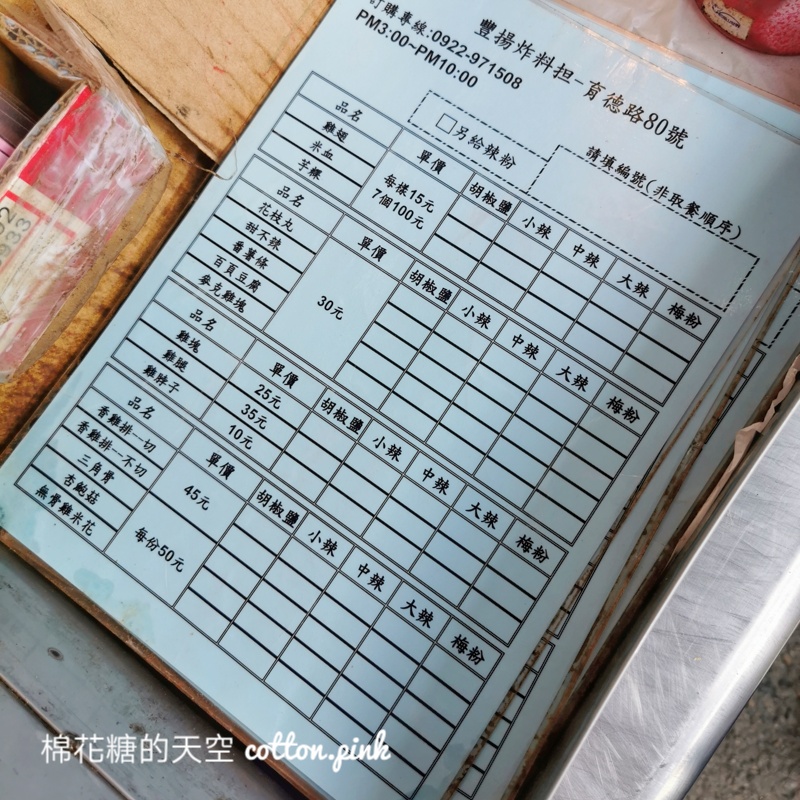 豐揚炸料担-育德路80號
訂購專線:0922-971508
PM3:00~PM10:00
□另給辣粉
請填編號(非取餐順序)
品名 單價 胡椒鹽 小辣 中辣 大辣 梅粉
雞翅 每樣15元
米血 7個100元
芋粿
品名 單價 胡椒鹽 小辣 中辣 大辣 梅粉
花枝丸 30元
甜不辣
番薯條
百頁豆腐
麥克雞塊
品名 單價 胡椒鹽 小辣 中辣 大辣 梅粉
雞塊 25元
雞腿 35元
雞脖子 10元
品名 單價 胡椒鹽 小辣 中辣 大辣 梅粉
香雞排--切 45元
香雞排--不切
三角骨 每份50元
杏鮑菇
無骨雞米花
棉花糖的天空 cotton.pink